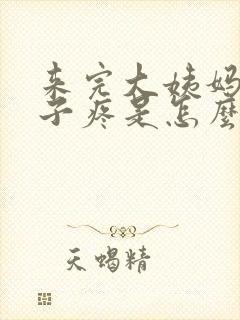 来完大姨妈
子疼是怎麼
天蝎精